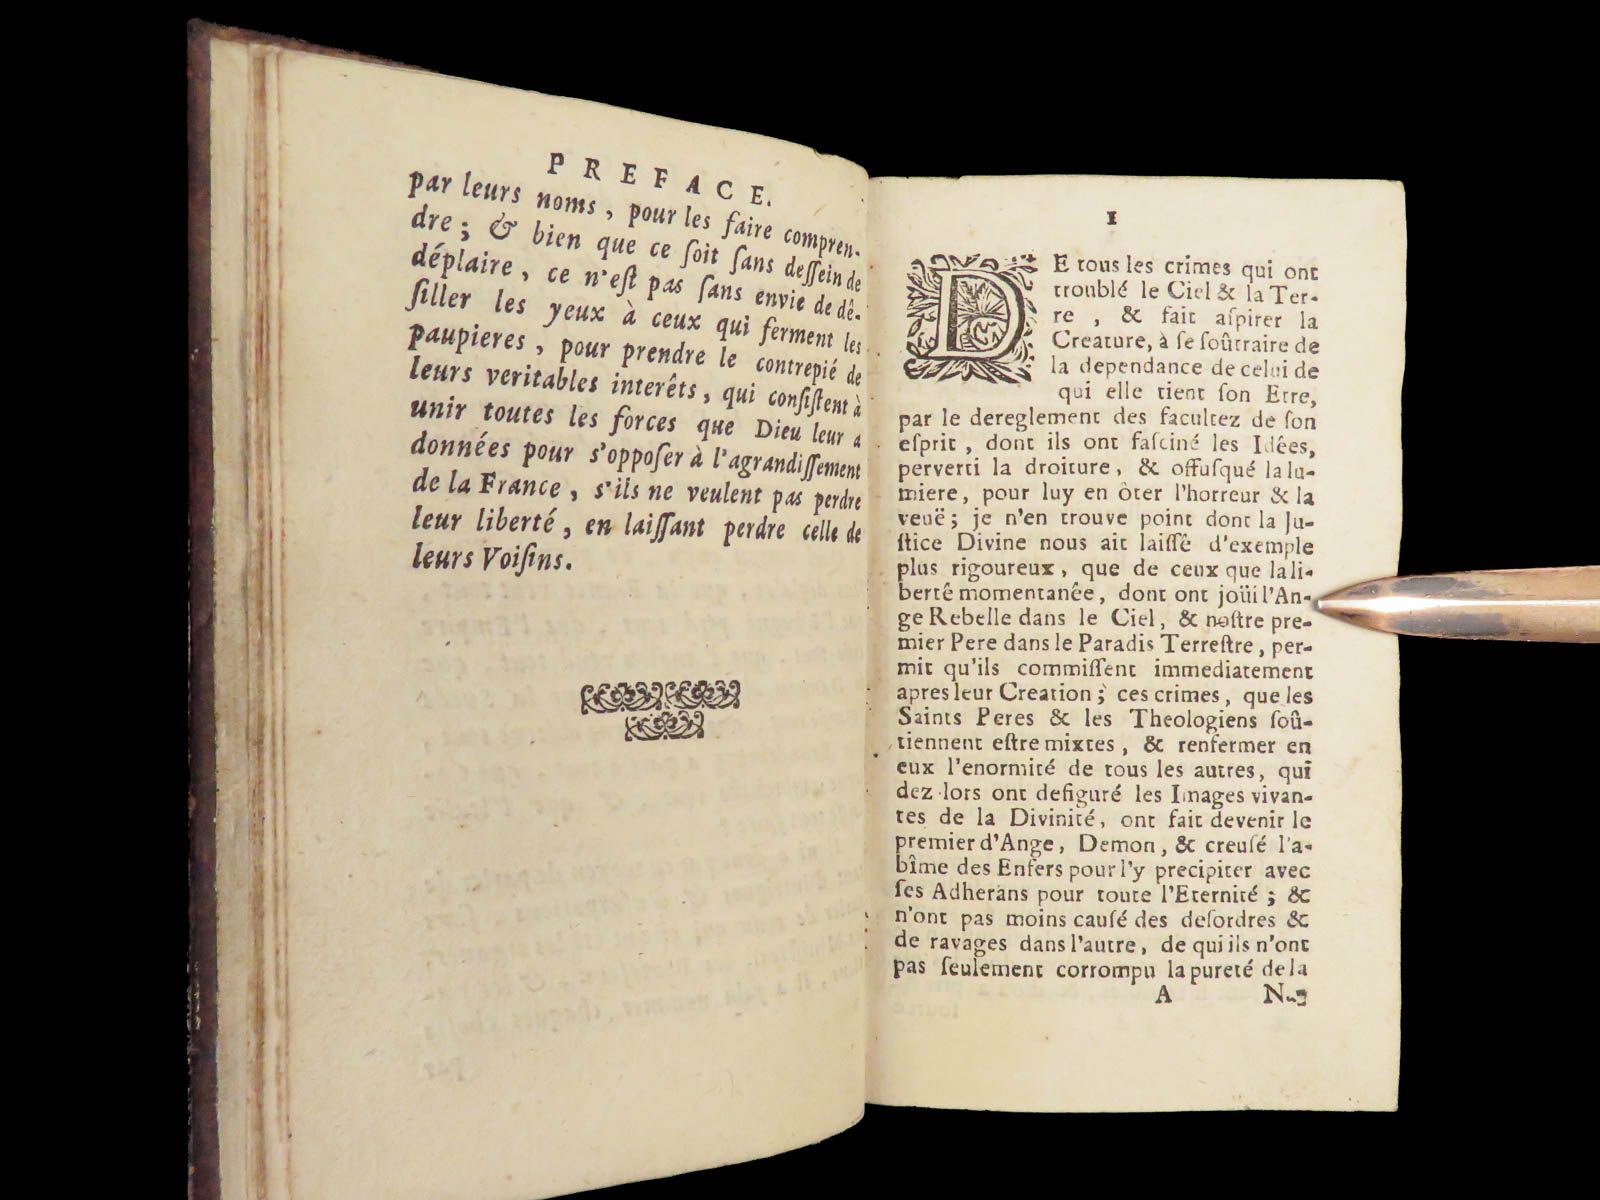 PREFACE.
par leurs noms, pour les faire compren-
dre; & bien que ce ſoit ſans deſſein de
déplaire, ce n'eſt pas ſans envie de dê-
ſiller les yeux à ceux qui ferment les
paupieres, pour prendre le contrepié de
leurs veritables interêts, qui conſiſtent à
unir toutes les forces que Dieu leur a
données pour s'oppoſer à l'agrandiſſement
de la France, s'ils ne veulent pas perdre
leur liberté, en laiſſant perdre celle de
leurs Voiſins.
1
DE tous les crimes qui ont
troublé le Ciel & la Ter-
re, & fait aſpirer la
Creature, à ſe ſoûtraire de
la dependance de celui de
qui elle tient ſon Etre,
par le dereglement des facultez de ſon
eſprit, dont ils ont faſciné les Idées,
perverti la droiture, & offuſqué la lu-
miere, pour luy en ôter l'horreur & la
veuë; je n'en trouve point dont la Ju-
ſtice Divine nous ait laiſſê d'exemple
plus rigoureux, que de ceux que la li-
bertê momentanêe, dont ont joüi l'An-
ge Rebelle dans le Ciel, & noſtre pre-
mier Pere dans le Paradis Terreſtre, per-
mit qu'ils commiſſent immediatement
apres leur Creation; ces crimes, que les
Saints Peres & les Theologiens ſoû-
tiennent eſtre mixtes, & renfermer en
eux l'enormité de tous les autres, qui
dez lors ont defiguré les Images vivan-
tes de la Divinité, ont fait devenir le
premier d'Ange, Demon, & creuſé l'a-
bîme des Enfers pour l'y precipiter avec
ſes Adherans pour toute l'Eternité; &
n'ont pas moins cauſé des deſordres &
de ravages dans l'autre, de qui ils n'ont
pas ſeulement corrompu la pureté de la
A